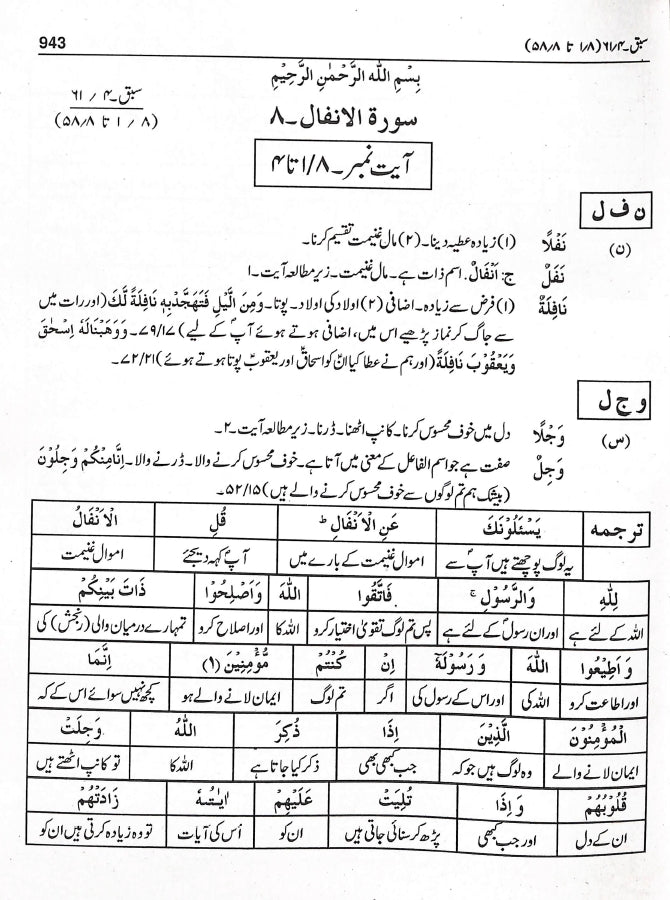 سبق۔۶۱/۴ (۱/۸ تا ۵۸/۸) 943
بِسْمِ اللّٰهِ الرَّحْمٰنِ الرَّحِیْمِ
سبق۔۴ / ۶۱
(۸ / ۱ تا ۵۸/۸)
سورة الانفال۔۸
آیت نمبر۔۱/۸ تا ۴
ن ف ل
(ن) نَفْلًا (۱) زیادہ عطیہ دینا۔ (۲) مال غنیمت تقسیم کرنا۔
نَفَلٌ ج: اَنْفَالٌ۔ اسم ذات ہے۔ مال غنیمت۔ زیر مطالعہ آیت۔۱
نَافِلَةٌ (۱) فرض سے زیادہ۔ اضافی (۲) اولاد کی اولاد۔ پوتا۔ وَمِنَ الَّیْلِ فَتَهَجَّدْ بِهٖ نَافِلَةً لَّكَ (اور رات میں
سے جاگ کر نماز پڑھیے اس میں، اضافی ہوتے ہوئے آپؐ کے لیے) ۷۹/۱۷۔ وَوَهَبْنَا لَهٗ اِسْحٰقَ
وَیَعْقُوْبَ نَافِلَةً (اور ہم نے عطا کیا انؑ کو اسحاقؑ اور یعقوبؑ پوتا ہوتے ہوئے) ۷۲/۲۱۔
و ج ل
(س) وَجَلًا دل میں خوف محسوس کرنا۔ کانپ اٹھنا۔ ڈرنا۔ زیر مطالعہ آیت۔۲۔
وَجِلٌ صفت ہے جو اسم الفاعل کے معنی میں آتا ہے۔ خوف محسوس کرنے والا۔ ڈرنے والا۔ اِنَّا مِنْكُمْ وَجِلُوْنَ
(بیشک ہم تم لوگوں سے خوف محسوس کرنے والے ہیں) ۵۲/۱۵۔
ترجمہ یَسْـَٔلُوْنَكَ عَنِ الْاَنْفَالِ ؕ قُلِ الْاَنْفَالُ
یہ لوگ پوچھتے ہیں آپؐ سے اموال غنیمت کے بارے میں آپؐ کہہ دیجئے اموال غنیمت
لِلّٰهِ وَالرَّسُوْلِ ۚ فَاتَّقُوا اللّٰهَ وَاَصْلِحُوْا ذَاتَ بَیْنِكُمْ
اللہ کے لئے ہے اور ان رسولؐ کے لئے ہے پس تم لوگ تقویٰ اختیار کرو اللہ کا اور اصلاح کرو تمہارے درمیان والی (رنجش) کی
وَ اَطِیْعُوا اللّٰهَ وَ رَسُوْلَهٗۤ اِنْ كُنْتُمْ مُّؤْمِنِیْنَ (۱) اِنَّمَا
اور اطاعت کرو اللہ کی اور اس کے رسول کی اگر تم لوگ ایمان لانے والے ہو کچھ نہیں سوائے اس کے کہ
الْمُؤْمِنُوْنَ الَّذِیْنَ اِذَا ذُكِرَ اللّٰهُ وَجِلَتْ
ایمان لانے والے وہ لوگ ہیں جو کہ جب کبھی بھی ذکر کیا جاتا ہے اللہ کا تو کانپ اٹھتے ہیں
قُلُوْبُهُمْ وَ اِذَا تُلِیَتْ عَلَیْهِمْ اٰیٰتُهٗ زَادَتْهُمْ
ان کے دل اور جب کبھی پڑھ کر سنائی جاتی ہیں ان کو اُس کی آیات تو وہ زیادہ کرتی ہیں ان کو